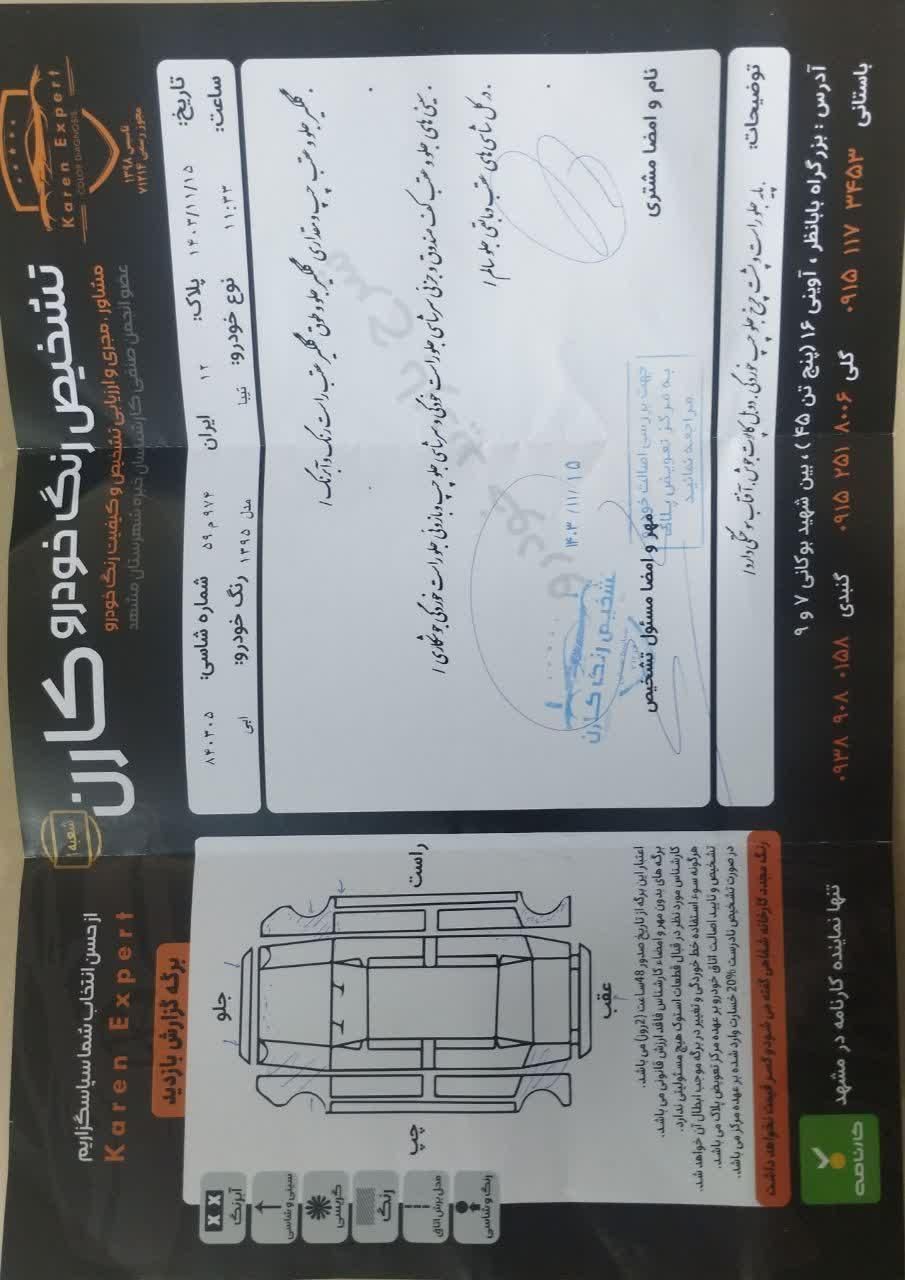 Karen Expert
COLOR DIAGNOSIS
تاسیس ۱۳۷۸
مجوز رسمی ۷۱۲۱۲
تشخیص رنگ خودرو کارن
شعبه
مشاور، مجری و ارزیابی تشخیص و کیفیت رنگ خودرو
عضو انجمن صنفی کارشناسان خبره شهرستان مشهد
تاریخ: ۱۴۰۳/۱۱/۱۵ پلاک: ۱۲ ایران ۹۷۴ م ۵۹ شماره شاسی: ۸۴۰۳۰۵
ساعت: ۱۱:۳۳ نوع خودرو: تیبا مدل ۱۳۹۵ رنگ خودرو: آبی
. گلگیر جلو و عقب چپ و مقداری گلگیر جلو و طوق گلگیر عقب راست رنگ و آبرنگ /
. سینی های جلو و عقب کف صندوق و جزئی سرشاسی جلو راست خوردگی و سرشاسی جلو چپ و بازوئی جلو راست خوردگی جوشکاری /
. در کل شاسی های عقب و مابقی جلو سالم /
نام و امضا مشتری
مهر و امضا مسئول تشخیص
تشخیص رنگ کارن
۱۴۰۳/۱۱/۱۵
جهت بررسی اصالت خودرو
به مرکز تعویض پلاک
مراجعه نمائید
توضیحات:
. پایه جلو راست و پشت چرخ جلو چپ خوردگی . دوبل کاپوت جوش . آفتاب سوختگی دارد /
آدرس : بزرگراه بابانظر ، آوینی ۱۶ (پنج تن ۴۵) ، بین شهید بوکانی ۷ و ۹
باستانی ۰۹۱۵ ۱۱۷ ۳۴۵۳ گلی ۰۹۱۵ ۲۵۱ ۸۰۰۶ گنبدی ۰۹۳۸ ۹۰۸ ۰۱۵۸
از حسن انتخاب شما سپاسگزاریم
Karen Expert
برگه گزارش بازدید
جلو
راست
چپ
عقب
آبرنگ
سینی و شاسی
گریسی
رنگ
محل برش اتاق
رنگ و شاسی
اعتبار این برگه از تاریخ صدور 48ساعت (2روز) می باشد.
برگه های بدون مهر و امضاء کارشناس فاقد ارزش قانونی می باشد.
کارشناس مورد نظر در قبال قطعات استوک هیچ مسئولیتی ندارد.
هرگونه سوء استفاده خط خوردگی و تغییر در برگه موجب ابطال آن خواهد شد.
تشخیص و تایید اصالت اتاق خودرو بر عهده مرکز تعویض پلاک می باشد.
در صورت تشخیص نادرست 20% خسارت وارد شده بر عهده مرکز می باشد.
رنگ مجدد کارخانه شفاهی گفته می شود و کسر قیمت نخواهد داشت
تنها نماینده کارنامه در مشهد
کارنامه